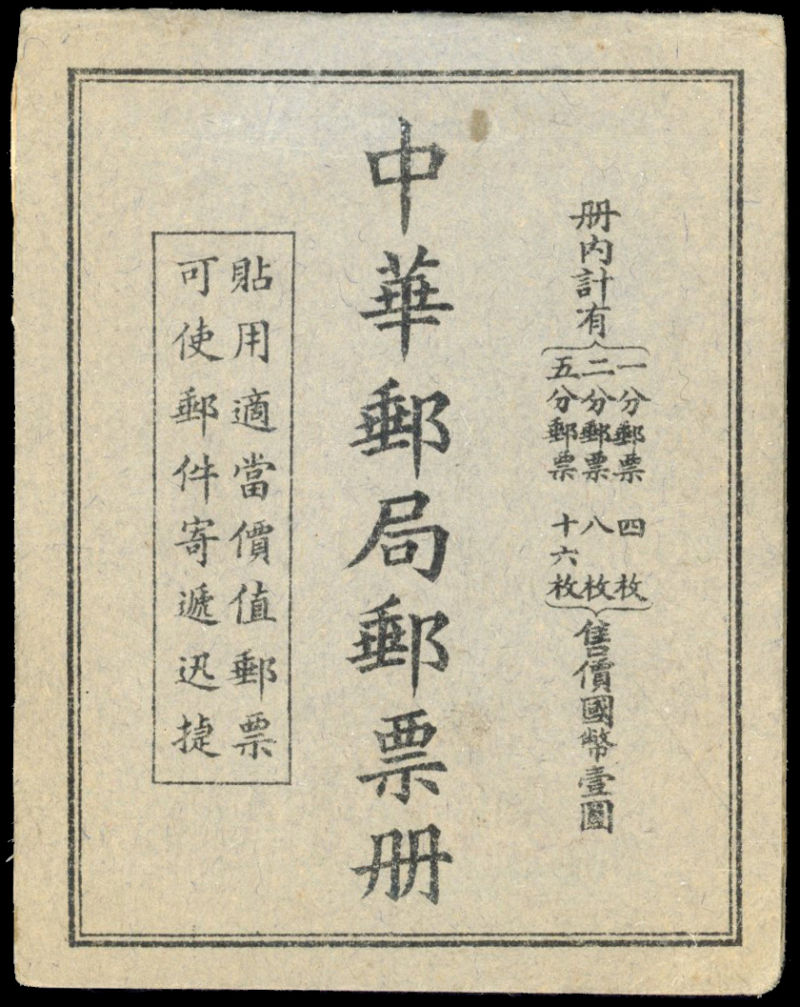 册内計有
一分郵票 四枚
二分郵票 八枚
五分郵票 十六枚
售價國幣壹圓
中華郵局郵票册
貼用適當價值郵票
可使郵件寄遞迅捷